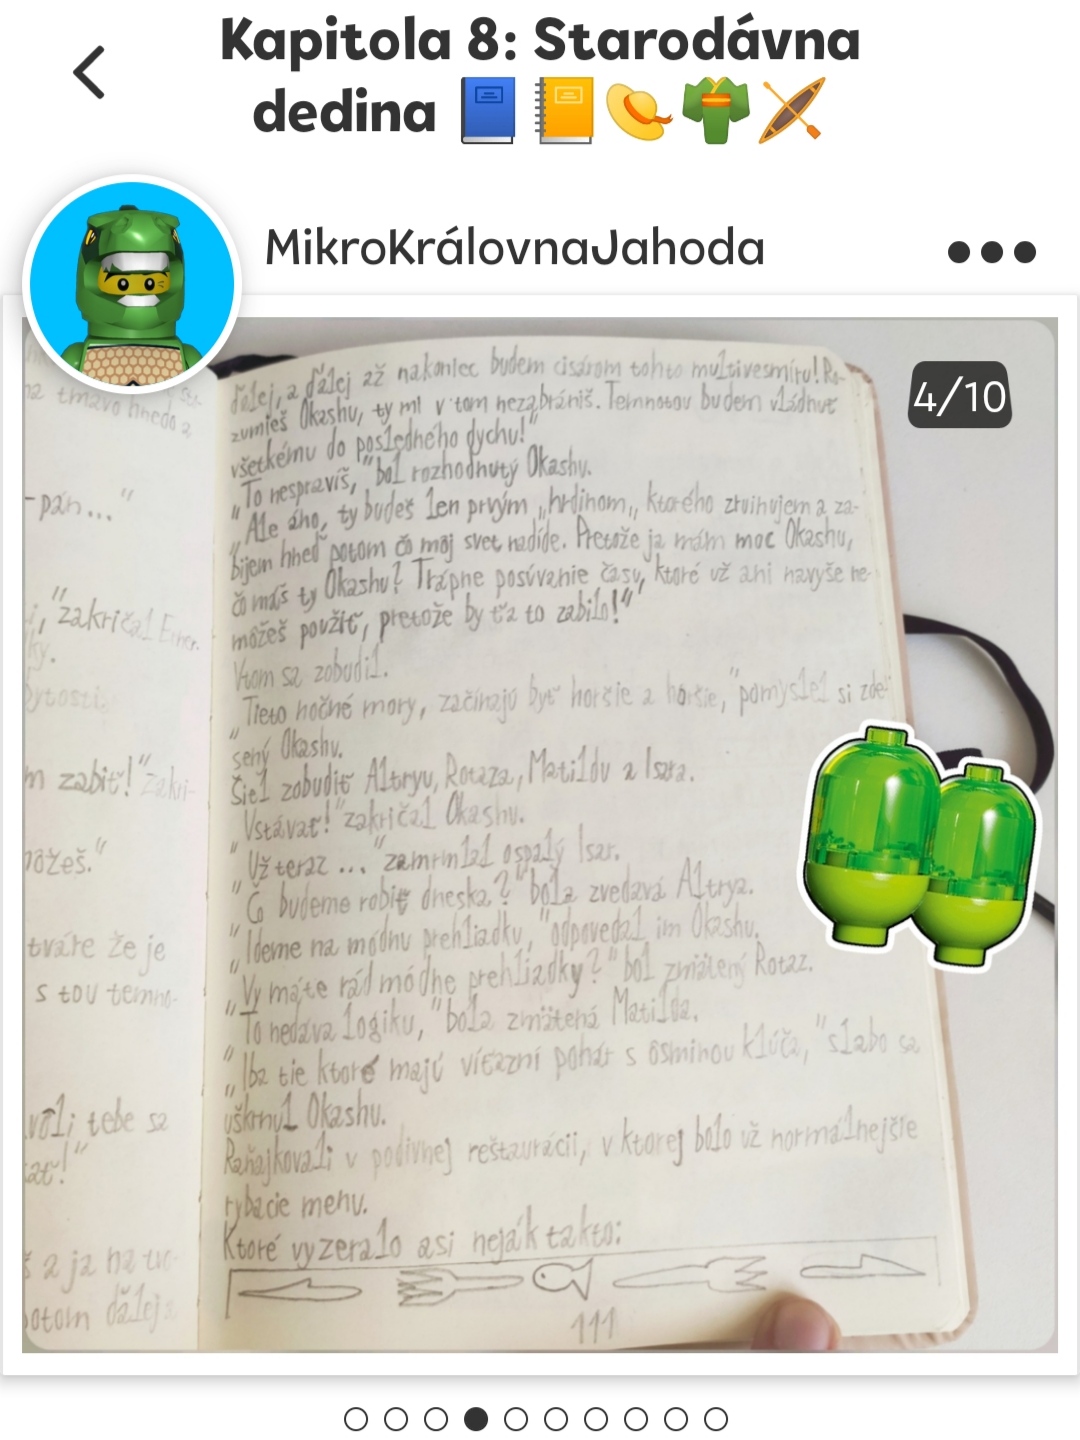 Kapitola 8: Starodávna
dedina
MikroKrálovnaJahoda
4/10
ďalej, a ďalej až nakoniec budem cisárom tohto multivesmíru! Ro-
zumieš Okashu, ty mi v tom nezabrániš. Temnotou budem vládnuť
všetkému do posledného dychu!"
„To nespravíš, "bol rozhodnutý Okashu.
„Ale áno, ty budeš len prvým „hrdinom„ ktorého zruinujem a za-
bijem hneď potom čo môj svet nadíde. Pretože ja mám moc Okashu,
čo máš ty Okashu? Trápne posúvanie času, ktoré už ani navyše ne-
môžeš použiť, pretože by ťa to zabilo!"
Vtom sa zobudil.
„Tieto nočné mory, začínajú byť horšie a horšie, "pomyslel si zde-
sený Okashu.
Šiel zobudiť Altryu, Rotaza, Matildu a Isara.
„Vstávať!" zakričal Okashu.
„Už teraz ... "zamrmlal ospalý Isar.
„Čo budeme robiť dneska?" bola zvedavá Altrya.
„Ideme na módnu prehliadku, "odpovedal im Okashu.
„Vy máte rád módne prehliadky?" bol zmätený Rotaz.
„To nedáva logiku, "bola zmätená Matilda.
„Iba tie ktoré majú víťazní pohár s ôsminou kľúča, "slabo sa
uškrnul Okashu.
Raňajkovali v podivnej reštaurácii, v ktorej bolo už normálnejšie
rybacie menu.
Ktoré vyzeralo asi neják takto:
111
na tmavo hnedo a
-pán..."
"zakričal
ky.
bytosti
m zabiť!" zakri-
môžeš."
tváre že je
s tou temno-
tebe sa
ať!"
a ja na tvo-
potom ďalej a